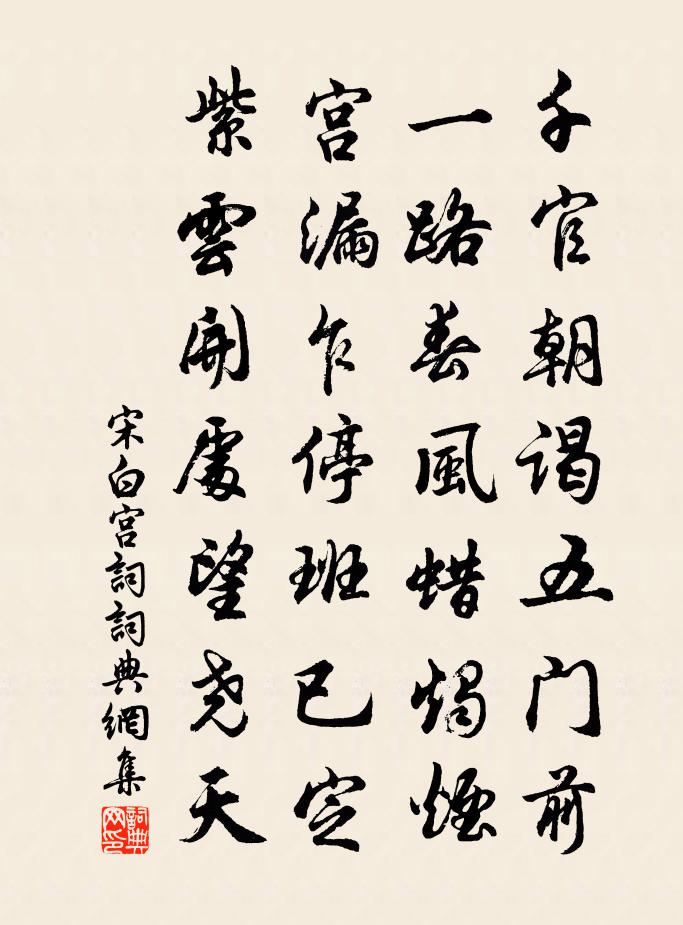 千官朝谒五门前
一路春風蜡燭煙
宮漏乍停班已定
紫雲開處望尧天
宋白宮詞詞典網集
詞典网印